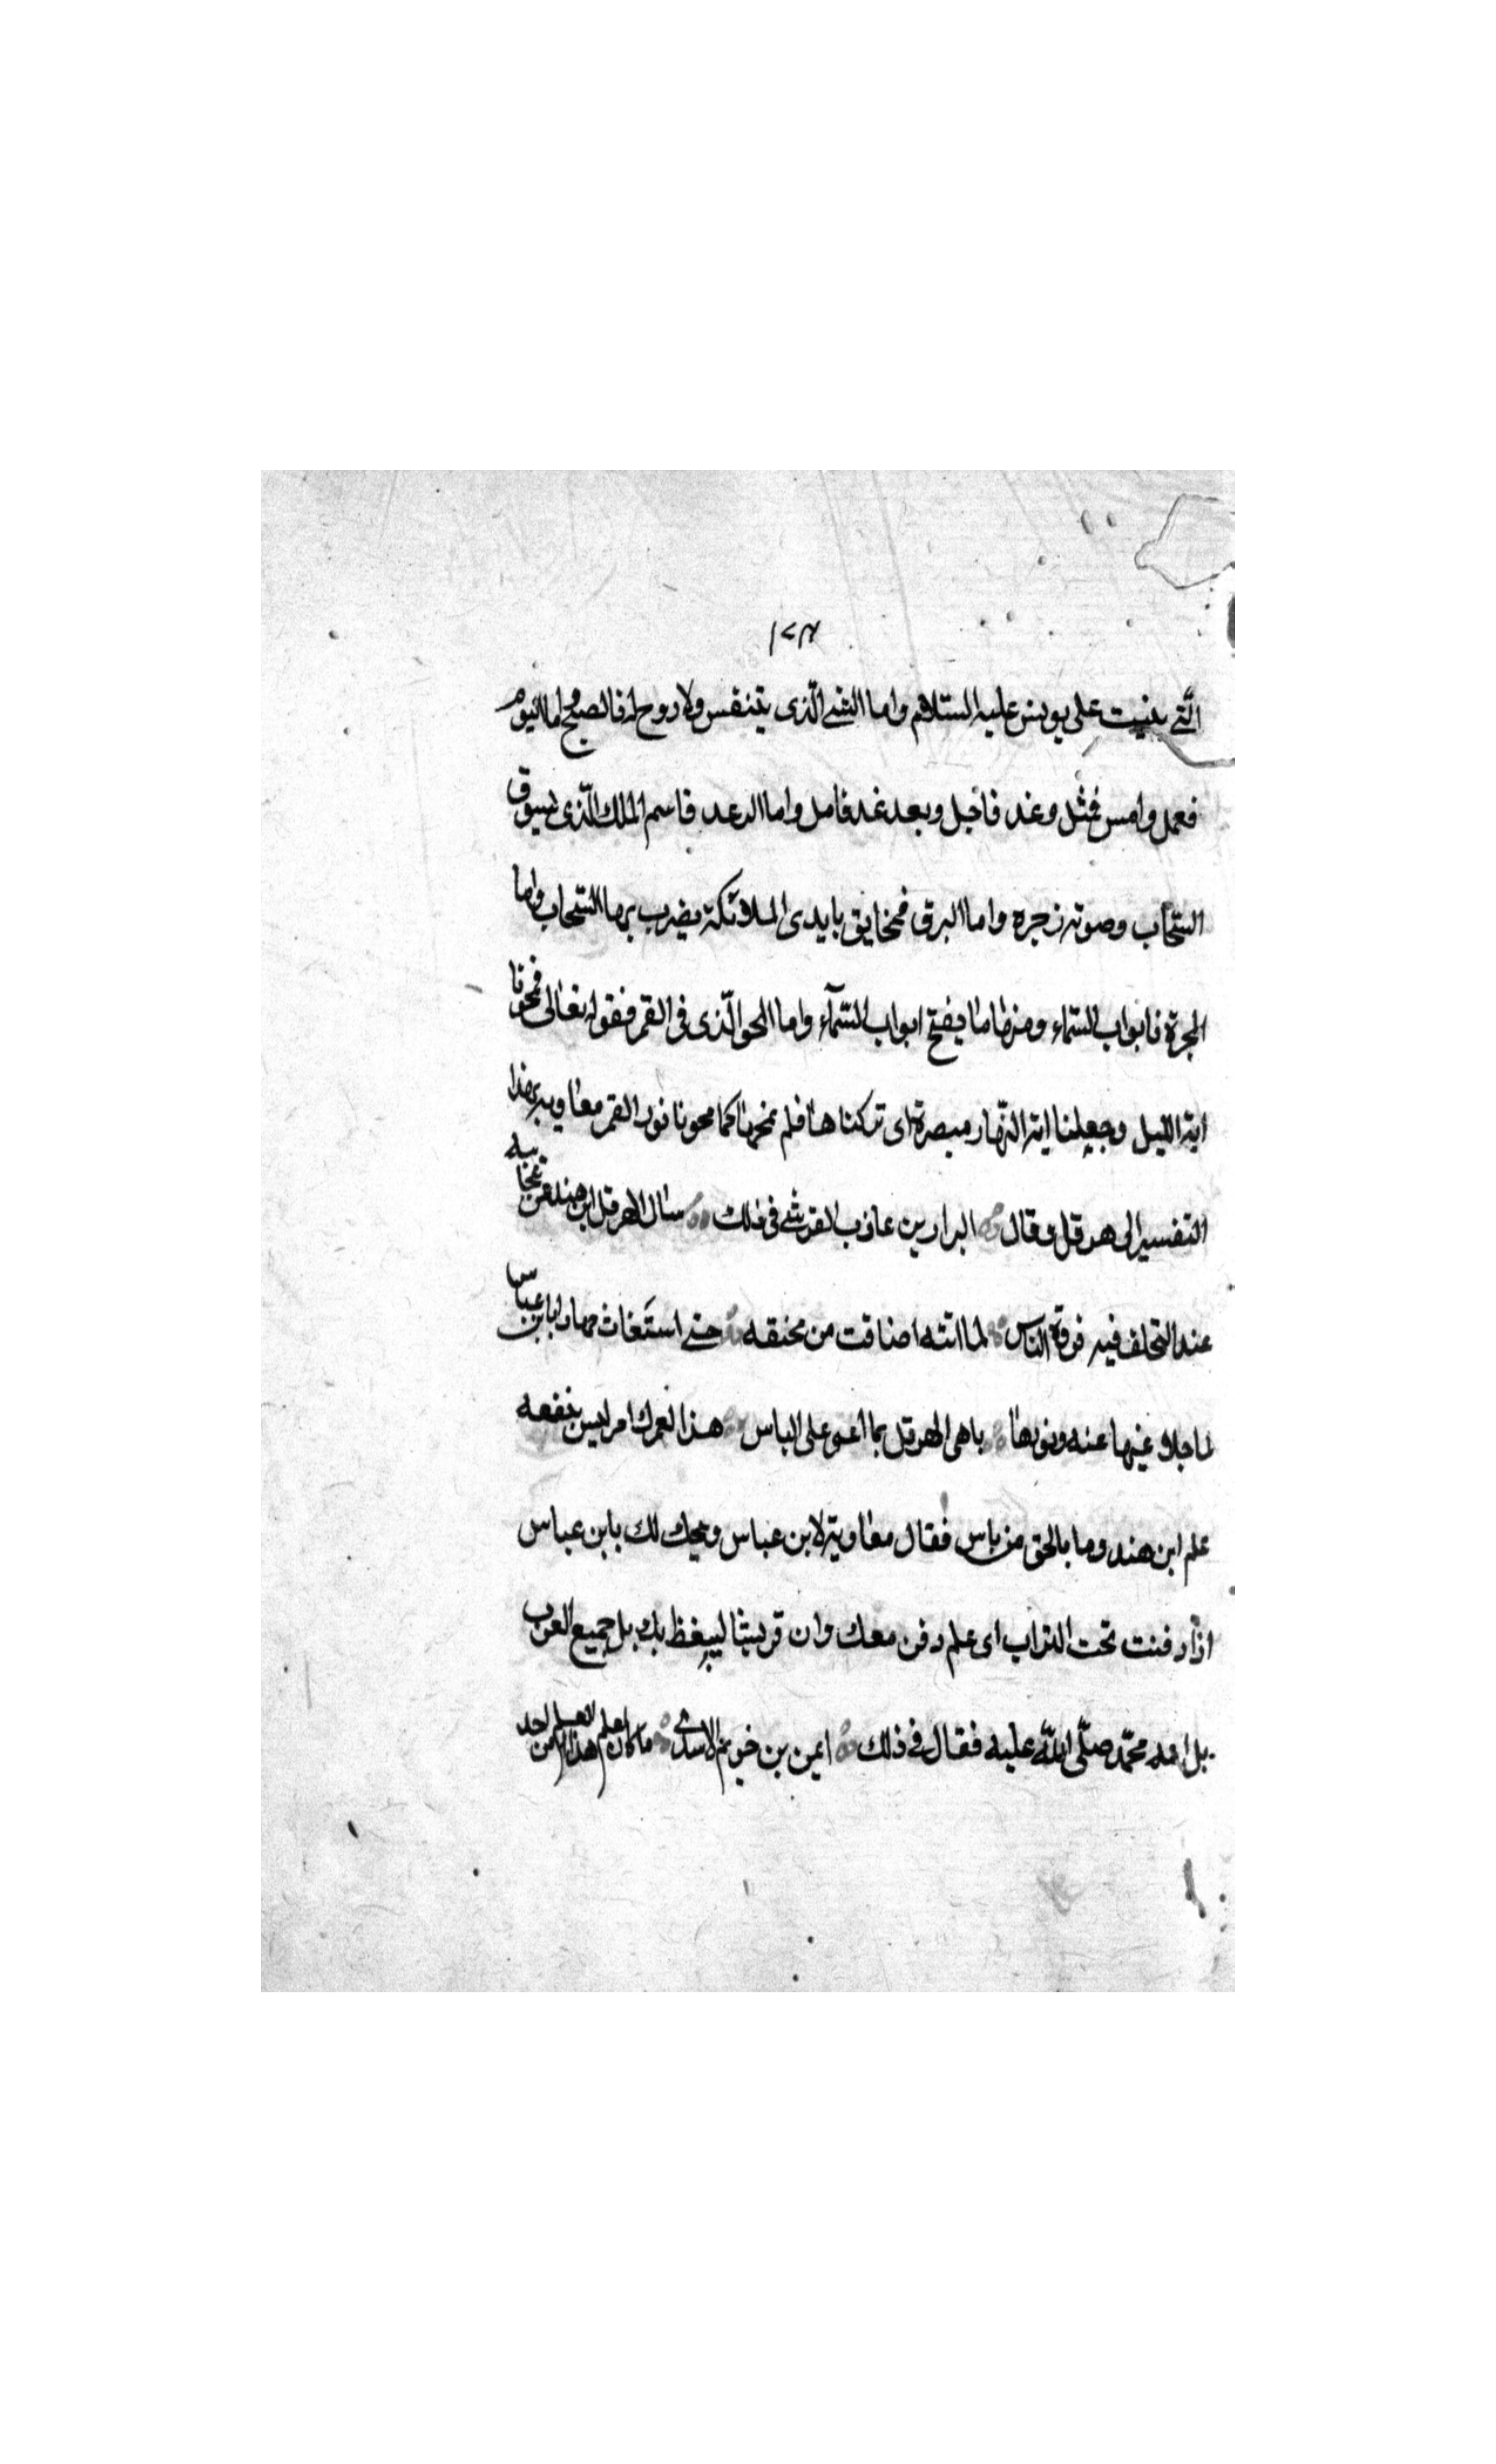 ١٢٨
الّتى بنيت على يونس عليه السّلام واما الشئ الّذى يتنفس ولا روح له فالصبح اما اليوم
فعمل وامس فمثل وغد فاجل وبعد غد فامل واما الرعد فاسم الملك الّذى يسوق
السّحاب وصوته زجره واما البرق فمخاريق بايدى الملائكة يضرب بها السّحاب واما
المجرة فابواب السّماء ومنها ما يفتح ابواب السّمآء واما المحو الّذى فى القمر فقوله تعالى فمحونا
اية الليل وجعلنا اية النّهار مبصرة اى تركناها فلم نمحها كما محونا نور القمر معاوية بهذا
التفسير الى هرقل وقال البرار بن عاذب القرشى فى ذلك سال الهرقل ابن هند عن عجايبه
عند التخلف فيه فرقة الناس لما اتته اضاقت من مخنقه حتى استغاث بابن عباس
لما جلا غيبها عنه ونورها باهى الهرقل بما اعيو على الباس هذا لعمرك امر ليس ينفعه
علم ابن هند وما بالحق من باس فقال معاوية لابن عباس ويحك لك يابن عباس
اذا دفنت تحت التراب اى علم دفن معك وان قريشا ليبغظ بك بل جميع العرب
بل امة محمّد صلّى اللّه عليه فقال فى ذلك ايمن بن خريم الاسدى ما كان يعلم هذا العلم من احد